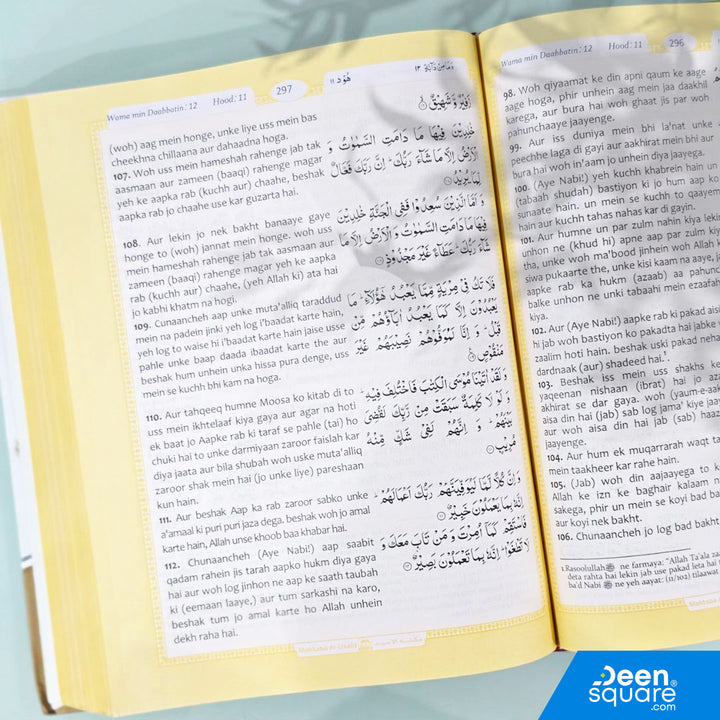 Wama min Daabbatin: 12 Hood: 11 296
98. Woh qiyaamat ke din apni qaum ke aage
aage hoga, phir unhein aag mein jaa daakhil
karega, aur bura hai woh ghaat jis par woh
pahunchaaye jaayenge.
99. Aur iss duniya mein bhi la'nat unke
peechhe laga di gayi aur aakhirat mein bhi aur
bura hai woh in'aam jo unhein diya jaayega.
100. (Aye Nabi!) yeh kuchh khabrein hain un
(tabaah shudah) bastiyon ki jo hum aap ko
sunaate hain. un mein se kuchh to qaayem
hain aur kuchh tahas nahas kar di gayin.
101. Aur humne un par zulm nahin kiya lekin
unhon ne (khud hi) apne aap par zulm kiya
tha, unke woh ma'bood jinhein woh Allah ke
siwa pukaarte the, unke kisi kaam na aaye, jab
aapke rab ka hukm (azaab) aa pahuncha
balke unhon ne unki tabaahi mein ezaafah
kiya.
102. Aur (Aye Nabi!) aapke rab ki pakad aisi
hi jab woh bastiyon ko pakadta hai jabke
zaalim hoti hain. beshak uski pakad nehayat
dardnaak (aur) shadeed hai.¹
103. Beshak iss mein uss shakhs ke
yaqeenan nishaan (ibrat) hai jo azaab
akhirat se dar gaya. woh (yaum-e-aakhirat
aisa din hai (jab) sab log jama' kiye jaayenge
aur woh aisa din hai jab (sab) haazir
jaayenge.
104. Aur hum ek muqarrarah waqt tak
mein taakheer kar rahe hain.
105. (Jab) woh din aajaayega to koi
Allah ke izn ke baghair kalaam na
sakega, phir un mein se koyi bad bakht
aur koyi nek bakht.
106. Chunaancheh jo log bad bakht
1.Rasoolullah ﷺ ne farmaya: "Allah Ta'ala zaalim
deta rahta hai lekin jab use pakad leta hai to
ba'd Nabi ﷺ ne yeh aayat: (11/102) tilaawat
Wama min Daabbatin: 12 Hood: 11 297 هُوْد ١١ وَمَا مِنْ دَآبَّةٍ ١٢
(woh) aag mein honge, unke liye uss mein bas
cheekhna chillaana aur dahaadna hoga.
107. Woh uss mein hameshah rahenge jab tak
aasmaan aur zameen (baaqi) rahenge magar
yeh ke aapka rab (kuchh aur) chaahe, beshak
aapka rab jo chaahe use kar guzarta hai.
108. Aur lekin jo nek bakht banaaye gaye
honge to (woh) jannat mein honge. woh uss
mein hameshah rahenge jab tak aasmaan aur
zameen (baaqi) rahenge magar yeh ke aapka
rab (kuchh aur) chaahe, (yeh Allah ki) ata hai
jo kabhi khatm na hogi.
109. Cunaancheh aap unke muta'alliq taraddud
mein na padein jinki yeh log i'baadat karte hain,
yeh log to waise hi i'baadat karte hain jaise usse
pahle unke baap daada ibaadat karte the aur
beshak hum unhein unka hissa pura denge, uss
mein se kuchh bhi kam na hoga.
110. Aur tahqeeq humne Moosa ko kitab di to
uss mein ikhtelaaf kiya gaya aur agar na hoti
ek baat jo Aapke rab ki taraf se pahle (tai) ho
chuki hai to unke darmiyaan zaroor faislah kar
diya jaata aur bila shubah woh uske muta'alliq
zaroor shak mein hai (jo unke liye) pareshaan
kun hain.
111. Aur beshak Aap ka rab zaroor sabko unke
a'maal ki puri puri jaza dega. beshak woh jo amal
karte hain, Allah unse khoob baa khabar hai.
112. Chunaancheh (Aye Nabi!) aap saabit
qadam rahein jis tarah aapko hukm diya gaya
hai aur woh log jinhon ne aap ke saath taubah
ki (eemaan laaye,) aur tum sarkashi na karo,
beshak tum jo amal karte ho Allah unhein
dekh raha hai.
زَفِيْرٌ وَّ شَهِيْقٌ
خٰلِدِيْنَ فِيْهَا مَا دَامَتِ السَّمٰوٰتُ وَ
الْاَرْضُ اِلَّا مَا شَآءَ رَبُّكَ ؕ اِنَّ رَبَّكَ فَعَّالٌ
لِّمَا يُرِيْدُ
وَ اَمَّا الَّذِيْنَ سُعِدُوْا فَفِى الْجَنَّةِ خٰلِدِيْنَ
فِيْهَا مَا دَامَتِ السَّمٰوٰتُ وَ الْاَرْضُ اِلَّا مَا
شَآءَ رَبُّكَ ؕ عَطَآءً غَيْرَ مَجْذُوْذٍ
فَلَا تَكُ فِىْ مِرْيَةٍ مِّمَّا يَعْبُدُ هٰٓؤُلَآءِ ؕ مَا
يَعْبُدُوْنَ اِلَّا كَمَا يَعْبُدُ اٰبَآؤُهُمْ مِّنْ
قَبْلُ ؕ وَ اِنَّا لَمُوَفُّوْهُمْ نَصِيْبَهُمْ غَيْرَ
مَنْقُوْصٍ
وَ لَقَدْ اٰتَيْنَا مُوْسَى الْكِتٰبَ فَاخْتُلِفَ فِيْهِ ؕ
وَ لَوْ لَا كَلِمَةٌ سَبَقَتْ مِنْ رَّبِّكَ لَقُضِىَ
بَيْنَهُمْ ؕ وَ اِنَّهُمْ لَفِىْ شَكٍّ مِّنْهُ
مُرِيْبٍ
وَ اِنَّ كُلًّا لَّمَّا لَيُوَفِّيَنَّهُمْ رَبُّكَ اَعْمَالَهُمْ ؕ
اِنَّهٗ بِمَا يَعْمَلُوْنَ خَبِيْرٌ
فَاسْتَقِمْ كَمَآ اُمِرْتَ وَ مَنْ تَابَ مَعَكَ وَ
لَا تَطْغَوْا ؕ اِنَّهٗ بِمَا تَعْمَلُوْنَ بَصِيْرٌ
Maktaba Al-Usaid
Deen
square®
.com